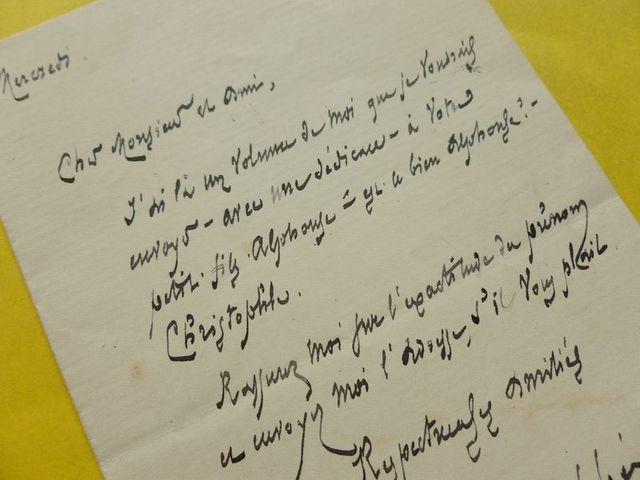 Mercredi.
Cher Monsieur et Ami,
J'ai là un volume de moi que je voudrais
envoyer - avec une dédicace - à votre
petit-fils Alphonse - est-ce bien Alphonse? -
Christophe.
Rassurez moi sur l'exactitude du prénom
et envoyez moi l'adresse, s'il vous plait
Respectueuses amitiés